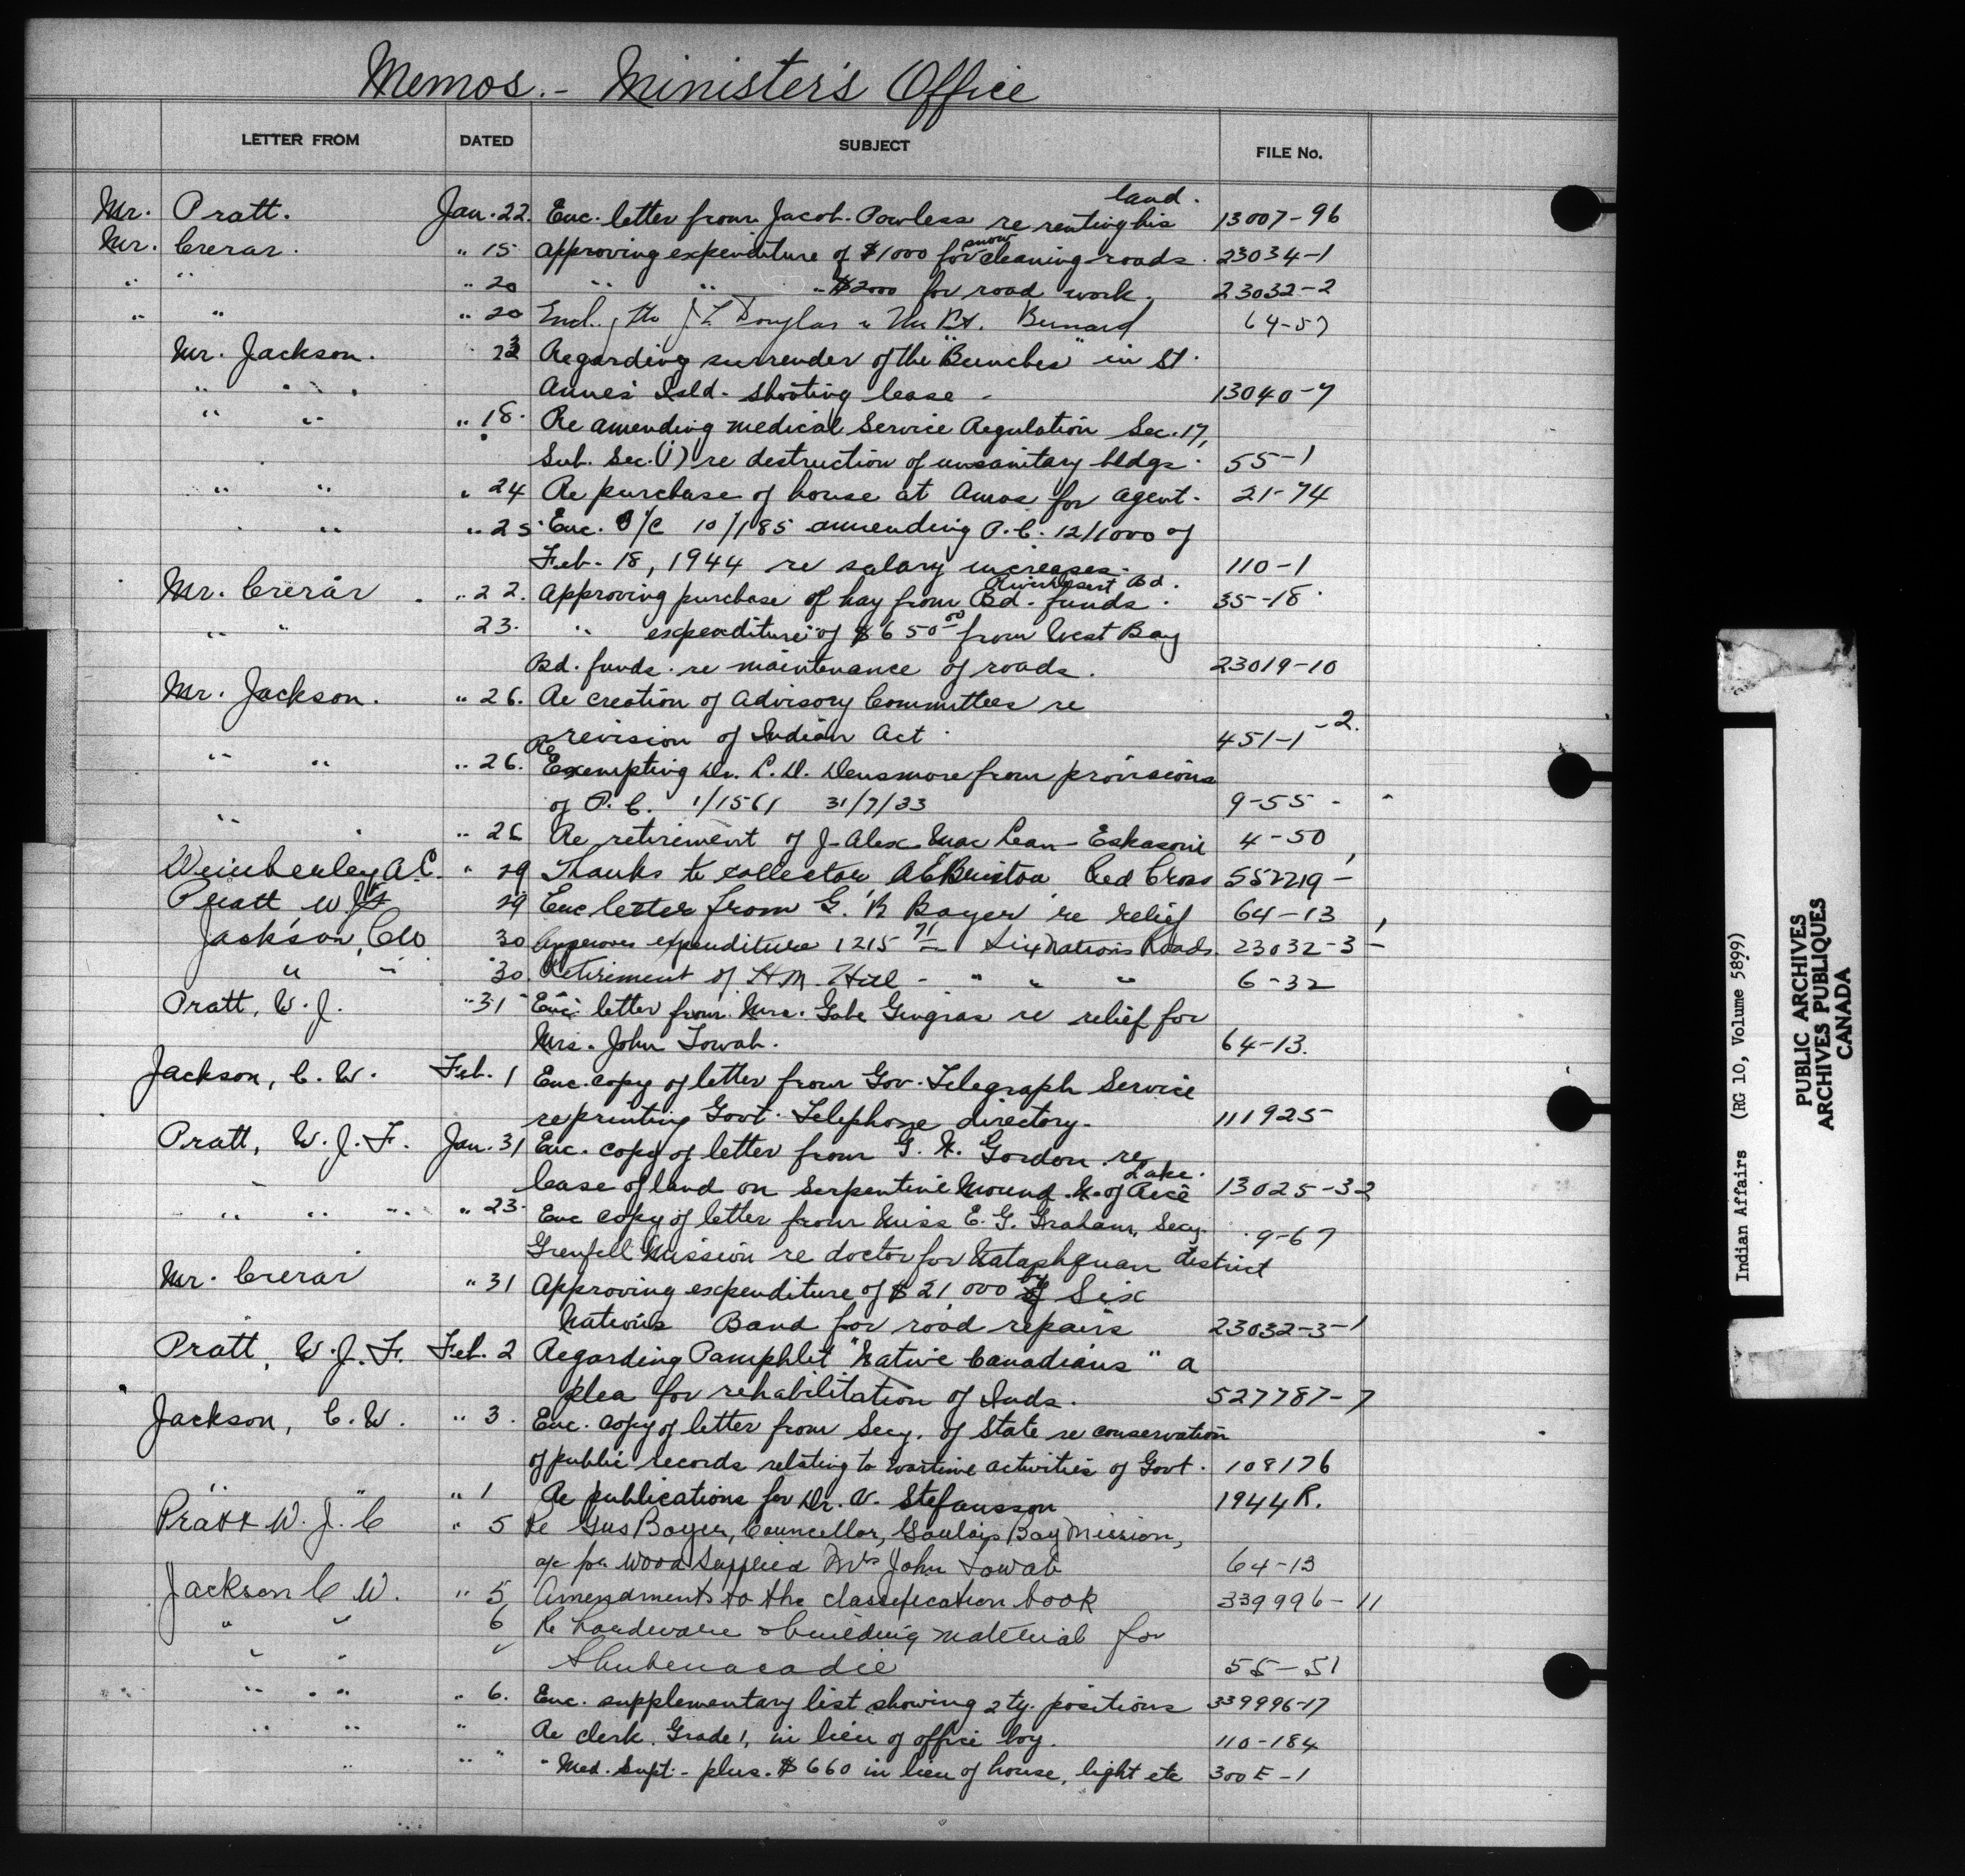 Memos. - Minister's Office
LETTER FROM DATED SUBJECT FILE No.
land.
Mr. Pratt. Jan. 22. Enc. letter from Jacob Powless re renting his 13007-96
snow
Mr. Crerar. " 15 Approving expenditure of $1000 for cleaning roads. 23034-1
" " " 20 " " " $2000 for road work. 23032-2
" " " 20 Encl. J. L. Douglas Bernard 64-57
Mr. Jackson. 23 Regarding surrender of the "Bunches" in St.
" " Anne's Isld. shooting lease - 13040-7
" " " 18. Re amending Medical Service Regulation Sec. 17,
Sub. Sec. (1) re destruction of unsanitary bldgs. 55-1
" " " 24 Re purchase of house at Amos for agent. 21-74
" " " 25 Enc. O/C 10/185 amending P.C. 12/1000 of
Feb. 18, 1944 re salary increases. 110-1
River Desert Bd.
Mr. Crerar. " 22. Approving purchase of hay from Bd. funds. 35-18
" " 23. " expenditure of $650.00 from West Bay
Bd. funds. re maintenance of roads. 23019-10
Mr. Jackson. " 26. Re creation of Advisory Committees re
revision of Indian Act. 451-1-2.
Re
" " " 26. Exempting Dr. C. D. Densmore from provisions
of P.C. 1/1561 31/7/33 9-55 -
" " 26 Re retirement of J. Alex MacLean - Eskasoni 4-50
A.C. " 29 Thanks to collector Red Cross 552219 -
Pratt W J F 29 Enc letter from G. R Boyer re relief 64-13
Jackson, CW 30 Approves expenditure 1215 71 Six Nations Roads. 23032-3 -
" " 30. Retirement of H.M. Hill - " " " 6-32
Pratt, W. J. " 31 Enc. letter from Mrs. Gabe Gingras re relief for
Mrs. John Towab. 64-13.
Jackson, C. W. Feb. 1 Enc. copy of letter from Gov. Telegraph Service
re printing Govt. Telephone directory. 111925
Pratt, W. J. F. Jan. 31 Enc. copy of letter from G. N. Gordon re
Lake.
lease of land on Serpentine Mound N. of Rice 13025-32
" " " " 23. Enc copy of letter from Miss E. G. Graham, Secy. 9-67
Grenfell Mission re doctor for Natashquan district
Mr. Crerar " 31 Approving expenditure of $21,000 by Six
Nations Band for road repairs 23032-3-1
Pratt, W. J. F. Feb. 2 Regarding Pamphlet "Native Canadians" a
plea for rehabilitation of Inds. 527787-7
Jackson, C. W. " 3. Enc. copy of letter from Secy. of State re conservation
of public records relating to wartime activities of Govt. 108176
" " " 1 Re publications for Dr. V. Stefansson 1944R.
Pratt W. J. C " 5 Re Gus Boyer, Councellor, Goulais Bay Mission,
a/c for wood supplied Mrs John Towab 64-13
Jackson C W. " 5 Amendments to the classification book 339996-11
" " 6 Re hardware & building material for
" " " Shubenacadie 55-51
" " " " 6. Enc. supplementary list showing 2 ty. positions 339996-17
" " " Re clerk, Grade 1, in lieu of office boy. 110-184
" " " " Med. Supt. - plus. $660 in lieu of house, light etc 300E-1
Indian Affairs (RG 10, Volume 5899)
PUBLIC ARCHIVES
ARCHIVES PUBLIQUES
CANADA